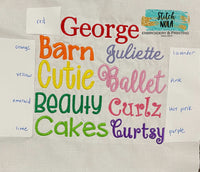 STITCH
NOLA
EMBROIDERY & PRINTING
red
George
orange
Barn
Juliette
lavender
yellow
Cutie
Ballet
pink
emerald
Beauty
Curlz
hot pink
lime
Cakes
Curtsy
purple